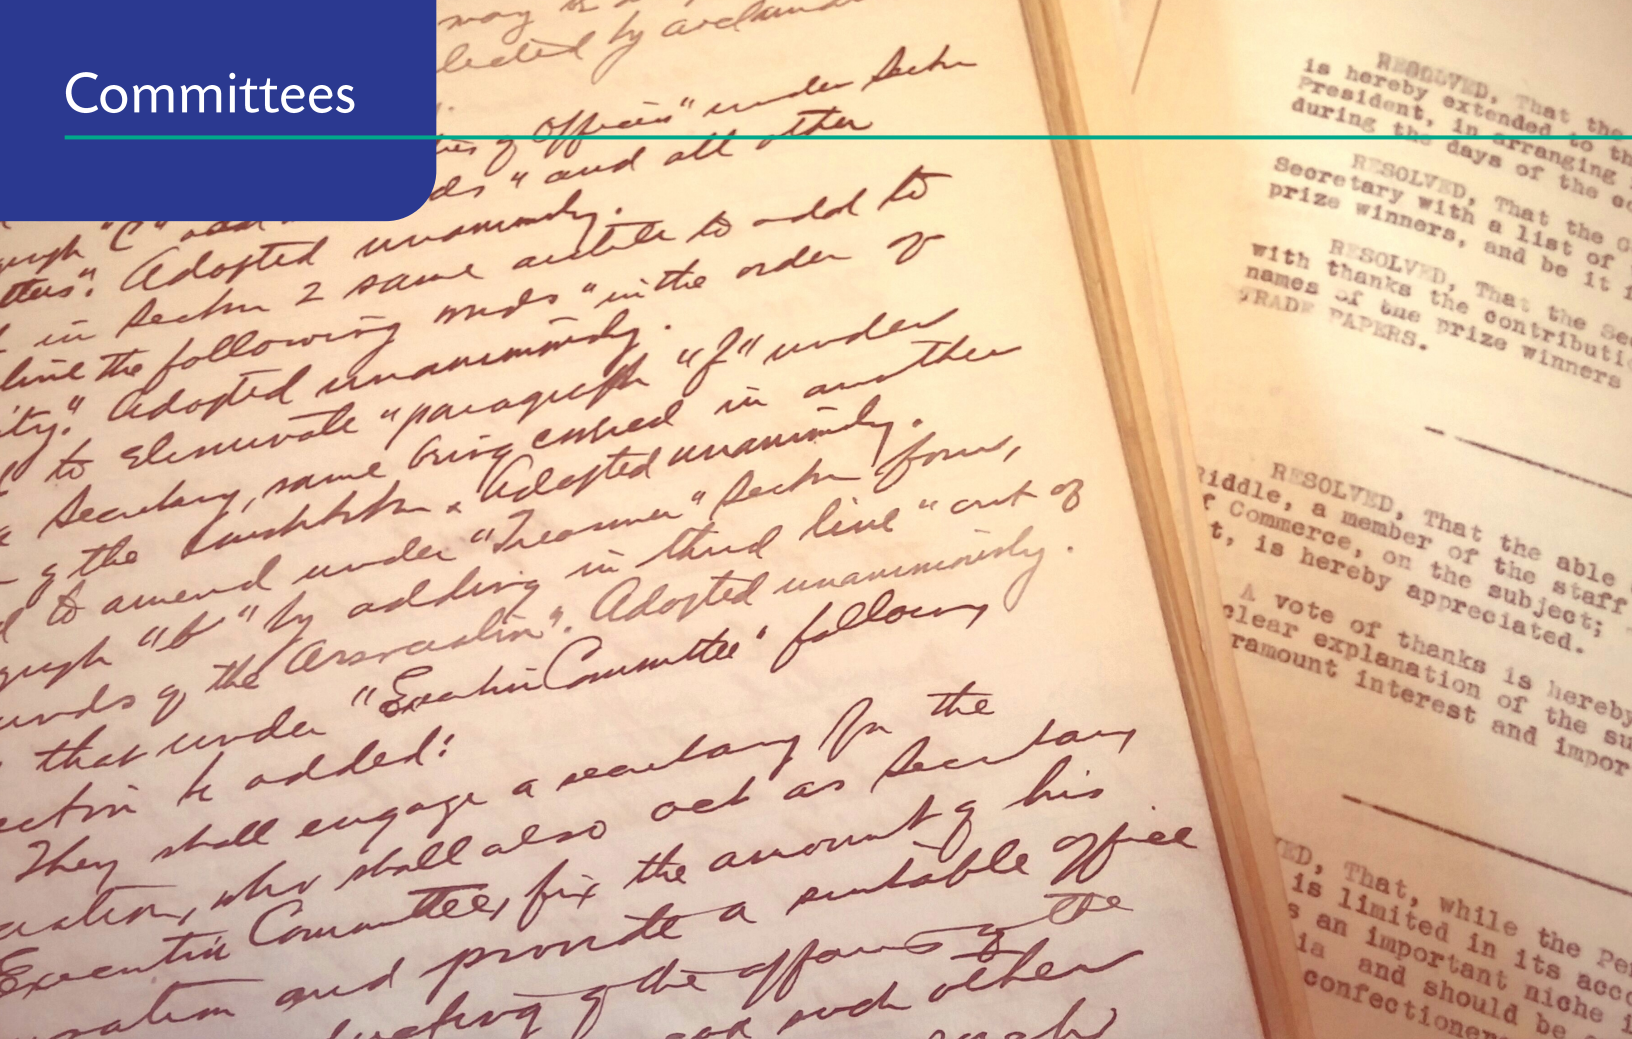 Committees
may be
elected by acclamation
ies of Officers" under Section
ds" and all other
ugh "C" add
tters". Adopted unanimously.
in Section 2 same article to add to
line the following words "in the order of
ity." Adopted unanimously.
to eliminate "paragraph "f" under
Secretary, same being covered in another
of the Constitution. Adopted unanimously.
d to amend under "Treasurer" Section four,
graph "b" by adding in third line "out of
unds of the Association". Adopted unanimously.
that under "Executive Committee" following
ection be added:
They shall engage a secretary for the
ciation, who shall also act as Secretary
Executive Committee, fix the amount of his
nsation and provide a suitable office
ducting of the affairs of the
and such other
RESOLVED, That the
is hereby extended to th
President, in arranging
during the days of the co
RESOLVED, That the G
Secretary with a list of
prize winners, and be it f
RESOLVED, That the Sec
with thanks the contributi
names of the prize winners
TRADE PAPERS.
RESOLVED, That the able
Riddle, a member of the staff
f Commerce, on the subject;
t, is hereby appreciated.
A vote of thanks is hereby
clear explanation of the su
ramount interest and impor
ED, That, while the Pe
is limited in its acco
s an important niche i
ia and should be
confectioner